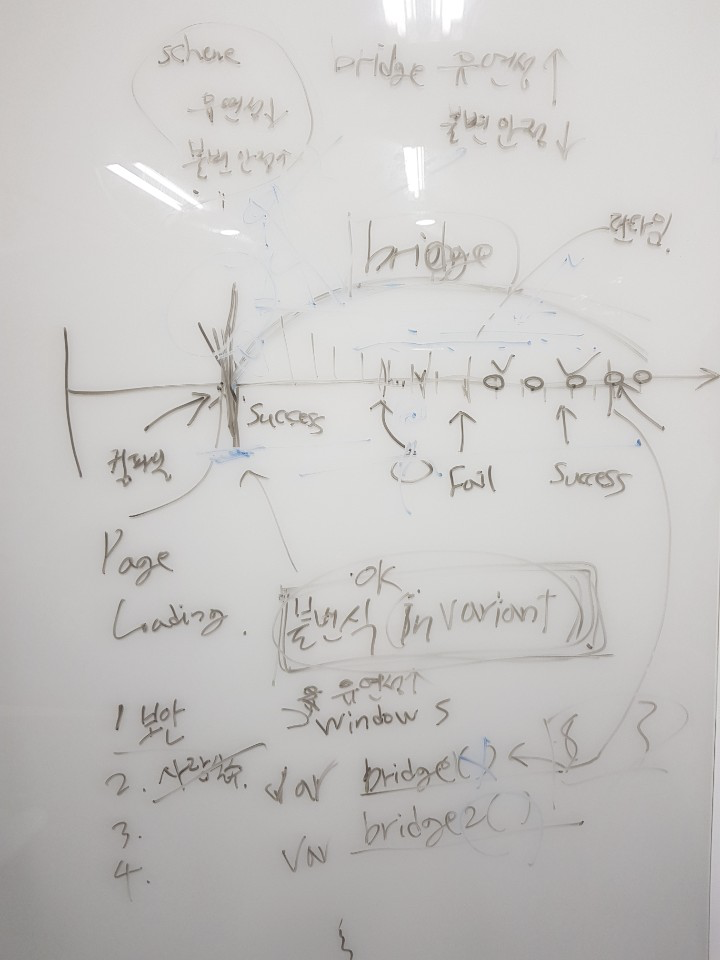 scheme
유연성↓
불변 안정↑
bridge 유연성↑
불변 안정↓
bridge
런타임
Success
컴파일
Fail
Success
Page
Loading.
OK
불변식 (invariant)
유연성↑
windows
1 보안
2.
var bridge() ← { }
3.
var bridge2()
4.